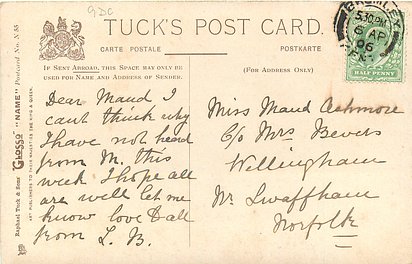 GDC
TUCK'S POST CARD.
CARTE POSTALE
POSTKARTE
IF SENT ABROAD, THIS SPACE MAY ONLY BE
USED FOR NAME AND ADDRESS OF SENDER.
(FOR ADDRESS ONLY)
5.30 PM
6 AP
06
HALF PENNY
Raphael Tuck & Sons' GLOSSO "NAME" Postcard No. N 55
ART PUBLISHERS TO THEIR MAJESTIES THE KING & QUEEN.
Dear Maud I
cant think why
I have not heard
from M. this
week I hope all
are well let me
know love to all
from L. B.
Miss Maud Ashmore
C/o Mrs Bevers
Wellingham
Nr. Swaffham
Norfolk